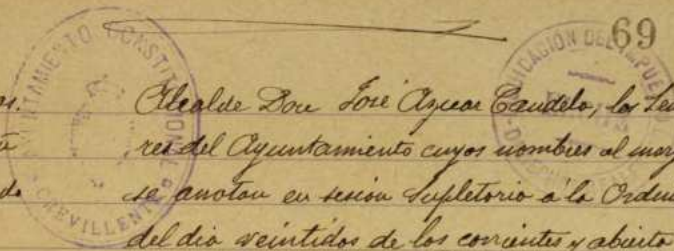 69
AYUNTAMIENTO CONSTITUCIONAL
CREVILLENTE
Alcalde Don José Aznar Candela, los Seño
res del Ayuntamiento cuyos nombres al marg
se anotan en sesión supletoria á la Ordin
del dia veintidos de los corrientes y abierto